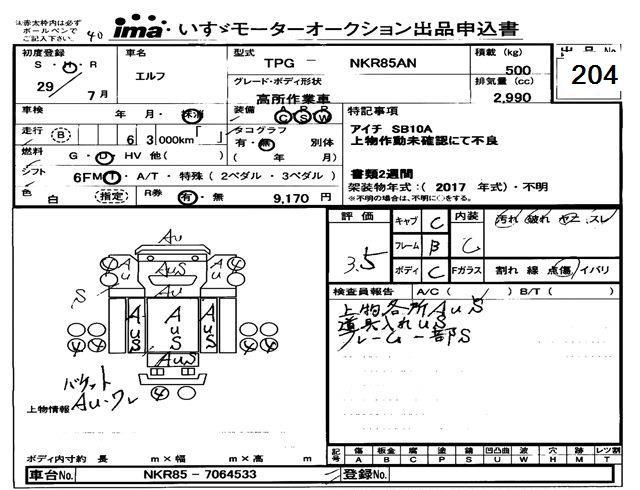 ※赤太枠内は必ず
ボールペンで
ご記入下さい。
40
ima いすゞモーターオークション出品申込書
初度登録
S・H・R
29 7月
車名
エルフ
型式
TPG - NKR85AN
グレード・ボディ形状
高所作業車
積載 (kg)
500
排気量 (cc)
2,990
出品No.
204
車検 年 月・抹消
装備 A C R S R W
走行 B 63000km「 」
タコグラフ
有・無 別体
( 年 月)
燃料 G・D・HV 他( )
シフト 6F MT・A/T・特殊(2ペダル・3ペダル)
色 白 (指定)
R券 有・無 9,170 円
特記事項
アイチ SB10A
上物作動未確認にて不良
書類2週間
架装物年式:( 2017 年式)・不明
※不明の場合は、不明に○をする。
評価
3.5
キャブ C
フレーム B
ボディ C
内装 C
Fガラス
汚れ 破れ ヤニ スレ
割れ 線 点傷 イバリ
検査員報告 A/C( / ) B/T( )
上物各所AuS
道具入れuS
フレーム一部S
Au
④ Au AuS Au ④
Au
S
AuS AuS AuS
④④ ④④
AuS
④
バケット
Au・ワレ
上物情報
ボディ内寸約 長 m×幅 m×高 m
記号 傷 板金 腐 塗 錆 凹凸曲 波 穴 跡 レツ割
A B C P S U W H M T
車台No. NKR85-7064533
登録No.